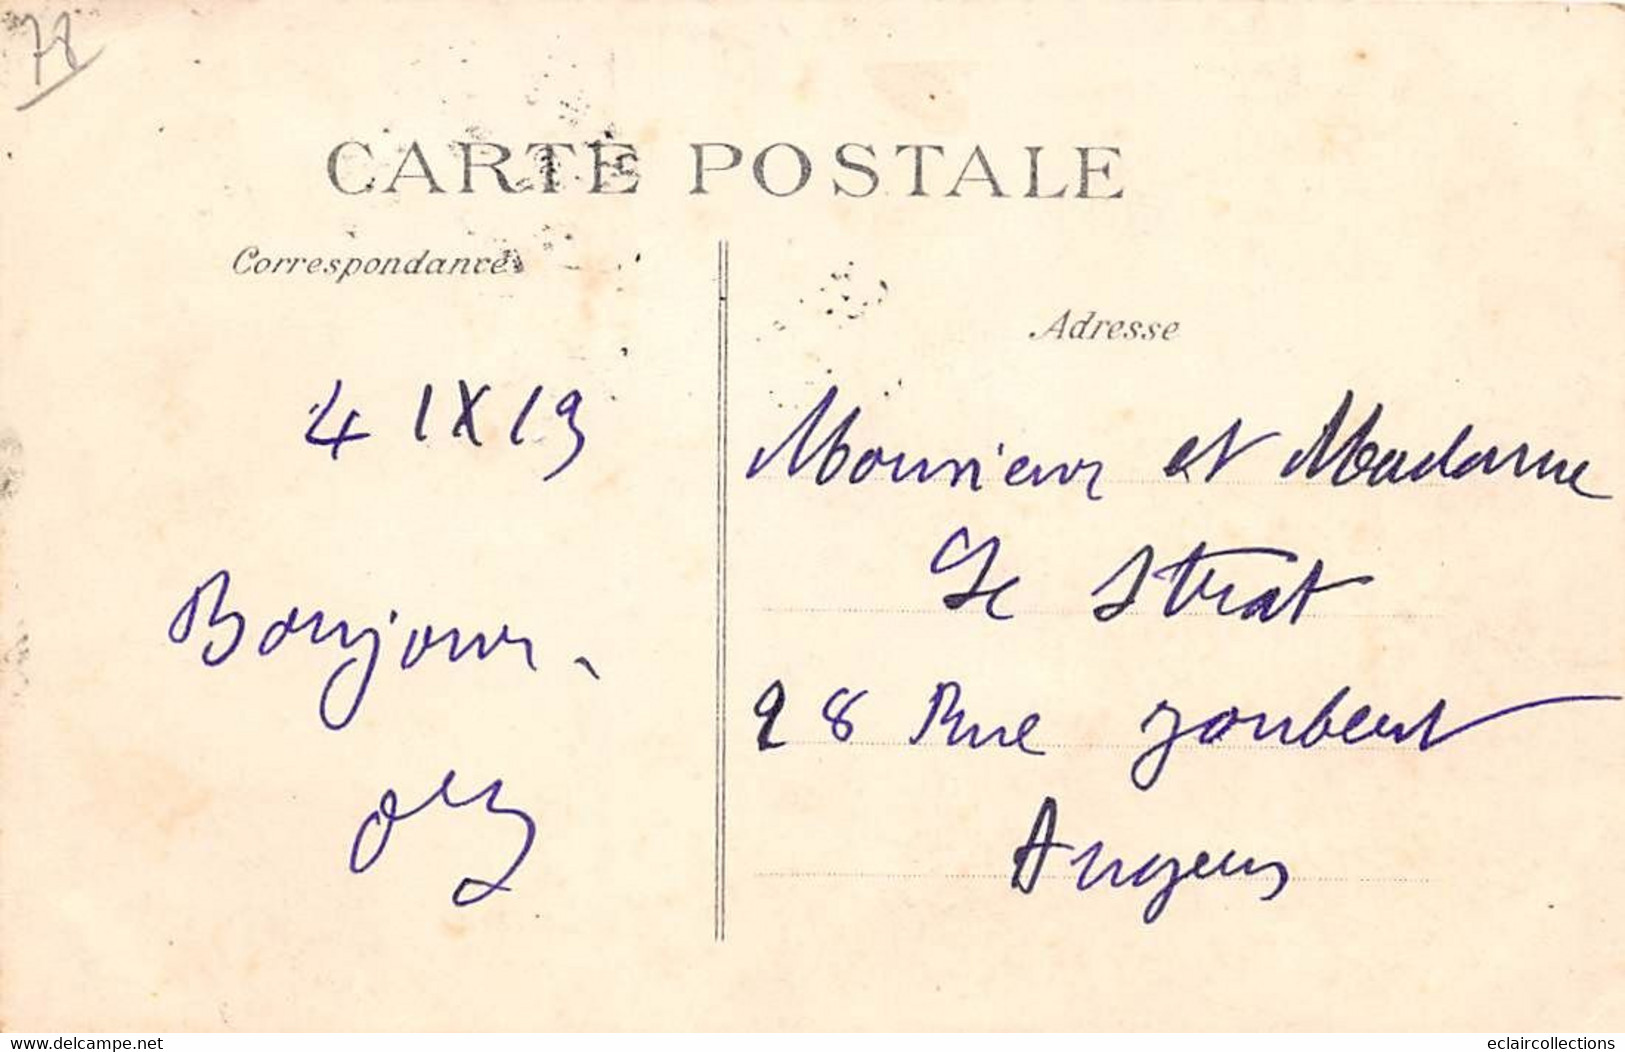 78
CARTE POSTALE
Correspondance
Adresse
4 IX 13
Bonjour.
Monsieur et Madame
Le Strat
28 Rue Joubert
Angers
www.delcampe.net
eclaircollections